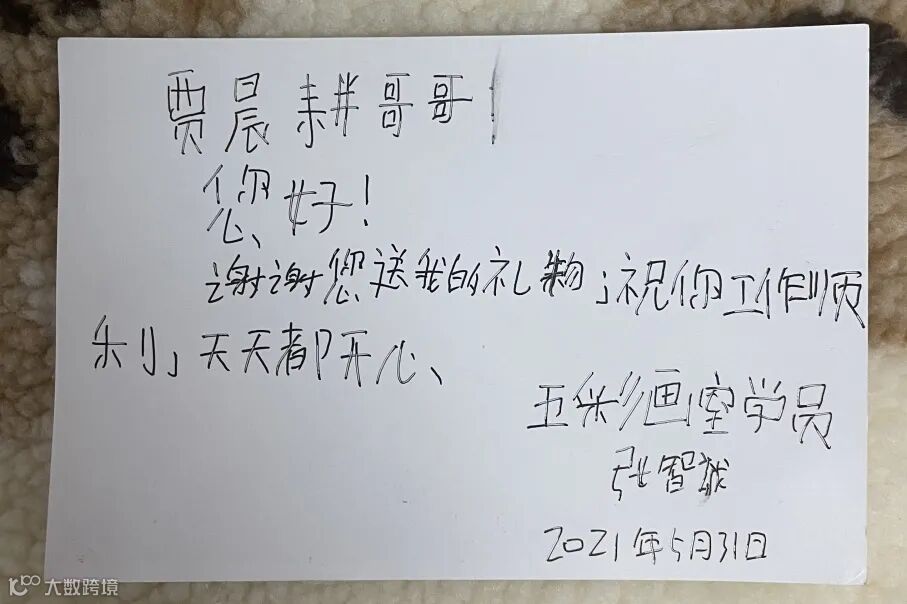 贾晨耕哥哥
您好！
谢谢您送我的礼物,祝你工作顺
利,天天都开心、
五彩画室学员
张智斌
2021年5月31日
大数跨境